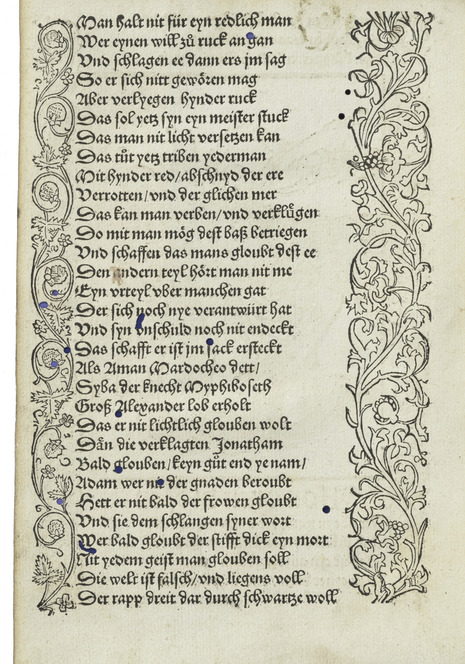 Man halt nit für eyn redlich man
Wer eynen will zů ruck an gan
Vnd schlagen ee dann ers jm sag
So er sich nitt gewözen mag
Aber verlyegen hynder ruck
Das sol yetz syn eyn meister stuck
Das man nit licht versetzen kan
Das tůt yetz triben yederman
Mit hynder red/abschnyd der ere
Verrotten/vnd der glichen mer
Das kan man verben/vnd verklůgen
Do mit man mög dest baß betriegen
Vnd schaffen das mans gloubt dest ee
Den andern teyl hört man nit me
Eyn vrteyl vber manchen gat
Der sich noch nye verantwürt hat
Vnd syn vnschuld noch nit endeckt
Das schafft er ist jm sack ersteckt
Als Aman Mardocheo dett/
Syba der knecht Myphiboseth
Groß Alexander lob erholt
Das er nit lichtlich glouben wolt
Dän die verklagten Jonatham
Bald glouben/keyn gůt end ye nam/
Adam wer nit der gnaden beroubt
Hett er nit bald der frowen gloubt
Vnd sie dem schlangen syner wort
Wer bald gloubt der stifft dick eyn mort
Nit yedem geist man glouben soll
Die welt ist falsch/vnd liegens voll
Der rapp dreit dar durch schwartze woll